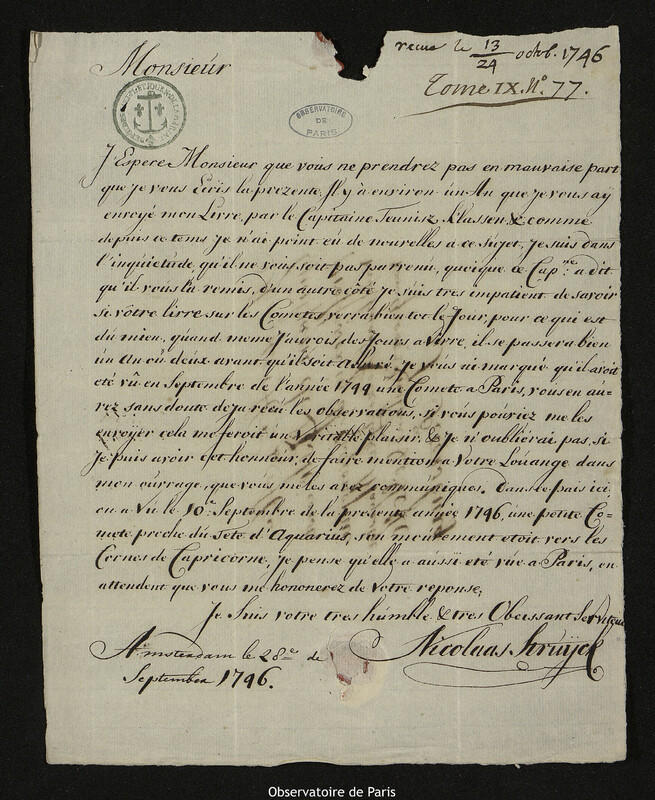 recue le 13/24 octob. 1746
Tome IX. No. 77.
Monsieur
OBSERVATOIRE
DE
PARIS
J'Espere Monsieur que vous ne prendrez pas en mauvaise part
que je vous Ecris la prezente. Il y a environ un An que je vous ay
envoyé mon Livre, par le Capitaine Teunisz Klassen, & comme
depuis ce tems je n'ai point eu de nouvelles a ce Sujet, je suis dans
l'inquietude, qu'il ne vous soit pas parvenu, quoique ce Capne. a dit
qu'il vous l'a remis, d'un autre côté je suis tres impatient de savoir
si vôtre livre sur les Cometes verra bien tot le Jour, pour ce qui est
du mien, quand meme j'aurois des Jours a vivre, il se passera bien
un An ou deux avant qu'il soit achevé. je vous ai marqué qu'il avoit
eté vû en Septembre de l'année 1744 une Comete a Paris, vous en au-
rez sans doute deja recu les observations, si vous pouviez me les
envoyer cela me feroit un veritable plaisir, & je n'oublierai pas, si
je puis avoir cet honneur, de faire mention a Votre Loüange dans
mon ouvrage, que vous me les avez communiques. Dans ce pais ici,
on a Vu le 10e Septembre de la presente année 1746, une petite Co-
mete proche du Tete d'Aquarius, son mouvement etoit vers les
Cornes de Capricorne, je pense qu'elle a aussi eté vue a Paris, en
attendent que vous me hononerez de Votre reponse;
Je Suis votre tres humble & tres Obeissant Serviteur
Nicolaas Struÿck
Amsterdam le 28e de
September 1746.
Observatoire de Paris